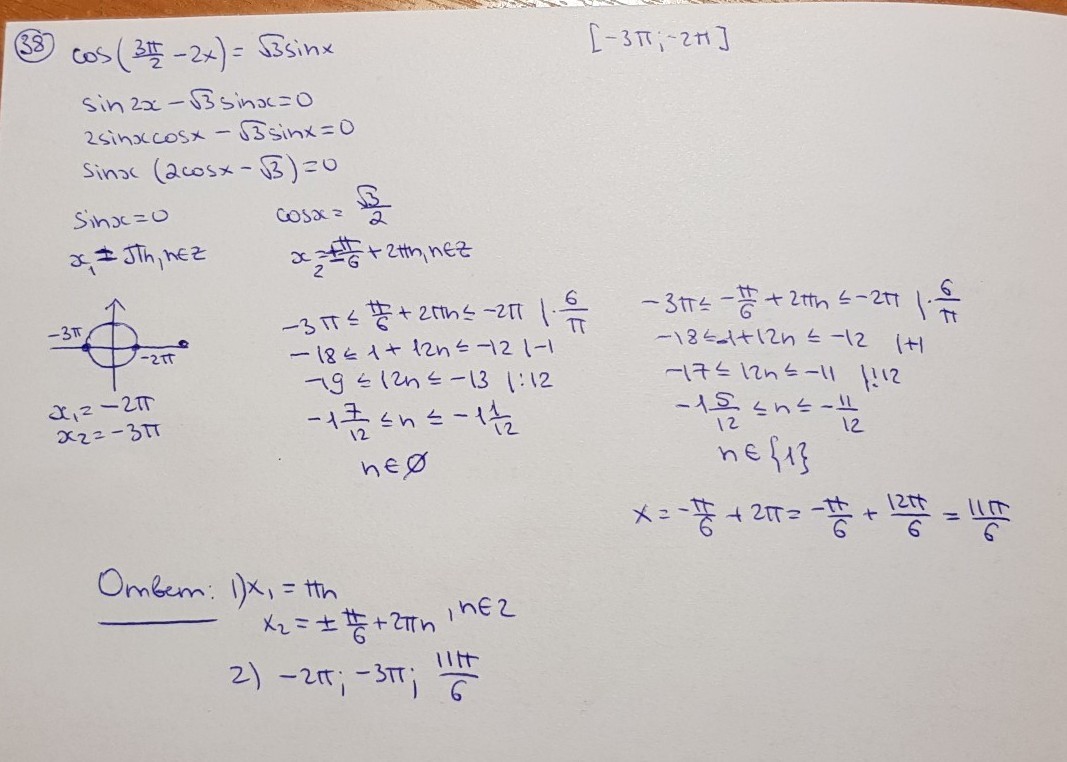 38 cos(3π/2 - 2x) = √3sinx [-3π; -2π]
sin2x - √3sinx = 0
2sinxcosx - √3sinx = 0
sinx (2cosx - √3) = 0
sinx = 0 cosx = √3/2
x₁ = πn, n∈Z x₂ = ±π/6 + 2πn, n∈Z
-3π
-2π
x₁ = -2π
x₂ = -3π
-3π ≤ π/6 + 2πn ≤ -2π |·6/π
-18 ≤ 1 + 12n ≤ -12 |-1
-19 ≤ 12n ≤ -13 |:12
-1 7/12 ≤ n ≤ -1 1/12
n∈∅
-3π ≤ -π/6 + 2πn ≤ -2π |·6/π
-18 ≤ -1 + 12n ≤ -12 |+1
-17 ≤ 12n ≤ -11 |:12
-1 5/12 ≤ n ≤ -11/12
n∈{1}
x = -π/6 + 2π = -π/6 + 12π/6 = 11π/6
Ответ: 1) x₁ = πn
x₂ = ±π/6 + 2πn, n∈Z
2) -2π; -3π; 11π/6